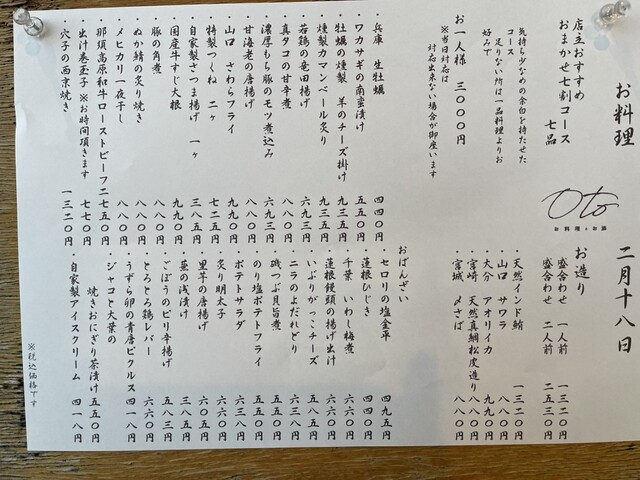 お料理
二月十八日
店主おすすめ
おまかせ七割コース
七品
気持ち少なめの余白を持たせた
コース
足りない所は一品料理よりお
好みで
お一人様 三〇〇〇円
※当日対応は
対応出来ない場合が御座います
Oto
お料理とお酒
お造り
盛合わせ 一人前 一三二〇円
盛合わせ 二人前 二五三〇円
・天然インド鮪 一三二〇円
・山口 サワラ 八八〇円
・大分 アオリイカ 九九〇円
・宮崎 天然真鯛松皮造り 八八〇円
・宮城 〆さば 八八〇円
・兵庫 生牡蠣 四四〇円
・ワカサギの南蛮漬け 五五〇円
・牡蠣の燻製 羊のチーズ掛け 九三五円
・燻製カマンベール炙り 九三五円
・若鶏の竜田揚げ 六九三円
・真タコの甘辛煮 八八〇円
・濃厚もち豚のモツ煮込み 六九三円
・甘海老の唐揚げ 七七〇円
・山口 さわらフライ 九九〇円
・特製つくね 二ヶ 七二六円
・自家製さつま揚げ 一ヶ 三八五円
・国産牛すじ大根 九九〇円
・豚の角煮 八八〇円
・ぬか鯖の炙り焼き 八八〇円
・メヒカリ一夜干し 八八〇円
・那須高原和牛ローストビーフ 二七五〇円
・出汁巻玉子 ※お時間頂きます 七七〇円
・穴子の西京焼き 一三二〇円
おばんざい
・セロリの塩金平 四九五円
・蓮根ひじき 四四〇円
・千葉 いわし梅煮 六六〇円
・蓮根饅頭の揚げ出汁 六六〇円
・いぶりがっこチーズ 五八五円
・ニラのよだれどり 六六〇円
・磯つぶ貝旨煮 五五〇円
・のり塩ポテトフライ 五五〇円
・ポテトサラダ 四九五円
・炙り明太子 五五〇円
・里芋の唐揚げ 六〇五円
・茎の浅漬け 三八五円
・ごぼうのピリ辛揚げ 五八三円
・とろとろ鶏レバー 六六〇円
・うずら卵の青唐ピクルス 四一八円
・ジャコと大葉の
焼きおにぎり茶漬け 五五〇円
・自家製アイスクリーム 四一八円
※税込価格です